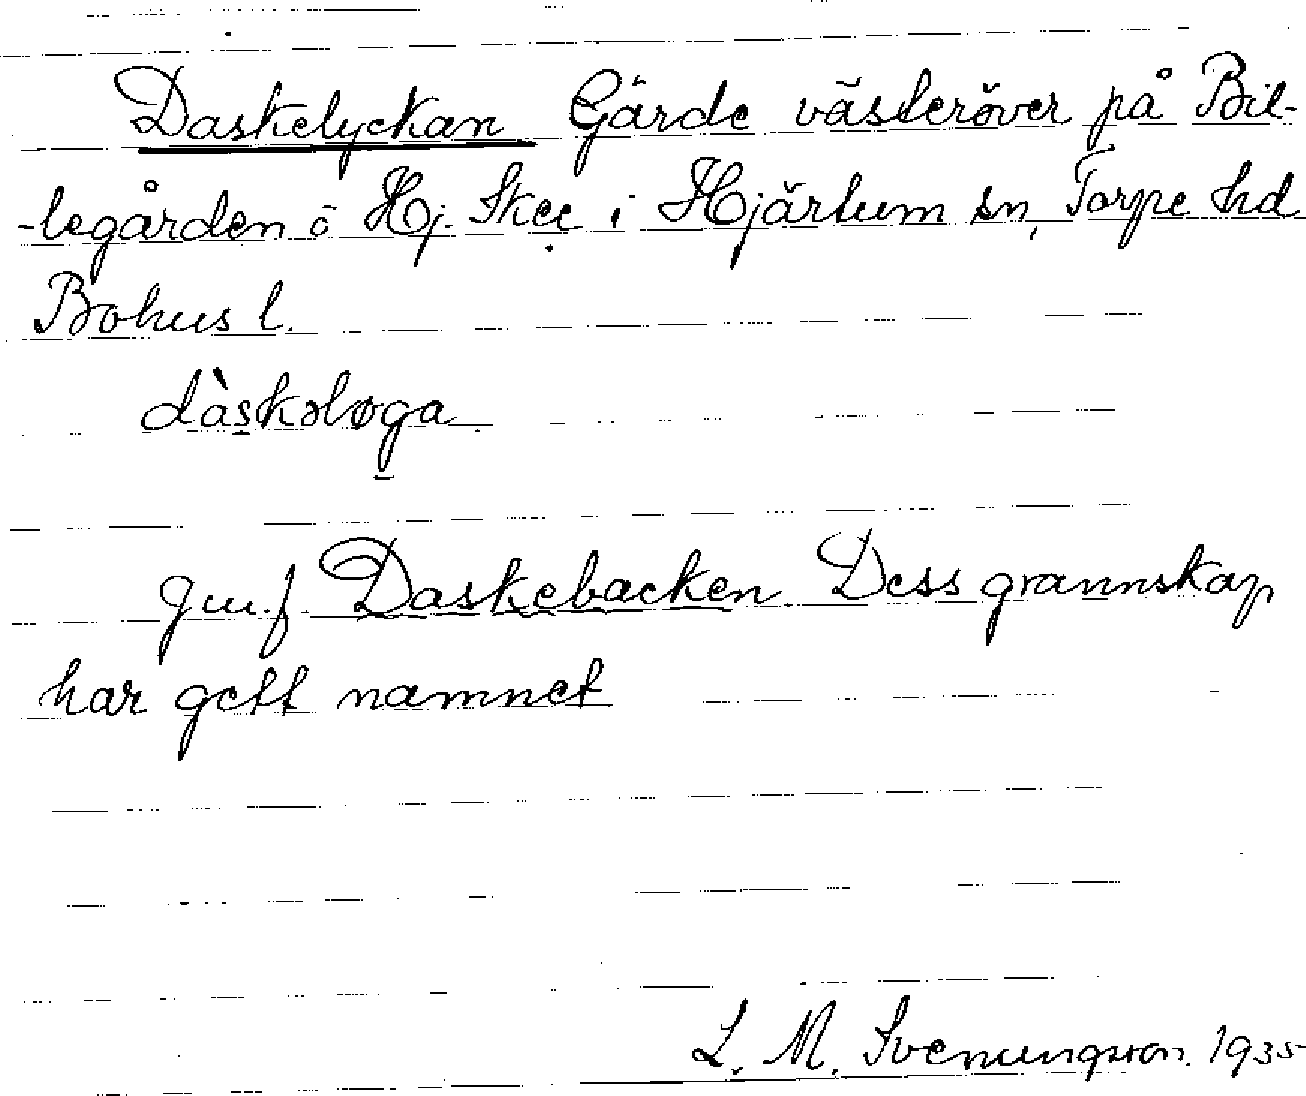 Daskelyckan Gärde västeröver på Bil-
-legården ö Hj. Skee i Hjärtum sn, Torpe hd
Bohus l.
dàskələga
Jmf. Daskebacken Dess grannskap
har gett namnet
L. M. Svenungsson. 1935